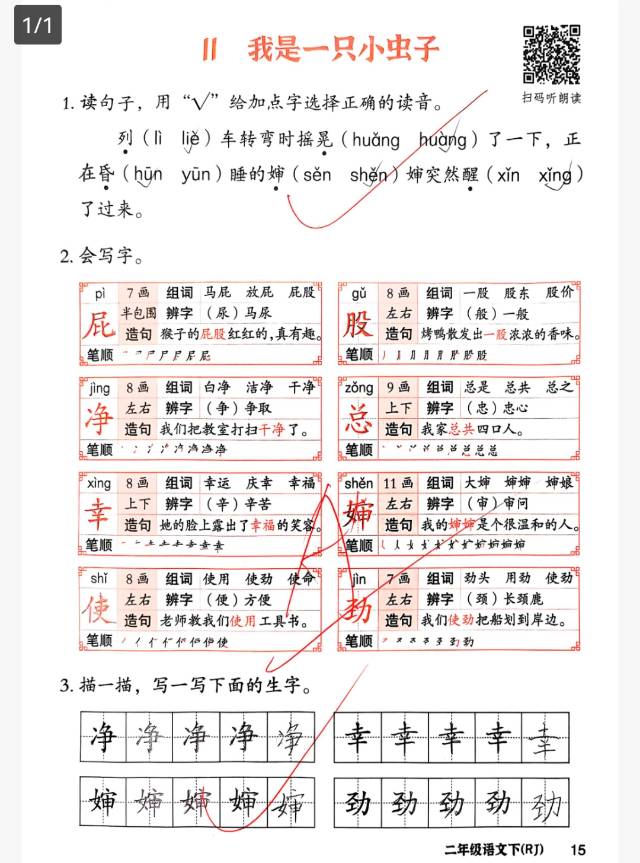 1/1
11 我是一只小虫子
扫码听朗读
1. 读句子，用“√”给加点字选择正确的读音。
列（lì liè）车转弯时摇晃（huǎng huàng）了一下，正
在昏（hūn yūn）睡的婶（sěn shěn）婶突然醒（xǐn xǐng）
了过来。
2. 会写字。
pì 7画 组词 马屁 放屁 屁股
屁 半包围 辨字 （尿）马尿
造句 猴子的屁股红红的，真有趣。
笔顺
gǔ 8画 组词 一股 股东 股价
股 左右 辨字 （般）一般
造句 烤鸭散发出一股浓浓的香味。
笔顺
jìng 8画 组词 白净 洁净 干净
净 左右 辨字 （争）争取
造句 我们把教室打扫干净了。
笔顺
zǒng 9画 组词 总是 总共 总之
总 上下 辨字 （忠）忠心
造句 我家总共四口人。
笔顺
xìng 8画 组词 幸运 庆幸 幸福
幸 上下 辨字 （辛）辛苦
造句 她的脸上露出了幸福的笑容。
笔顺
shěn 11画 组词 大婶 婶婶 婶娘
婶 左右 辨字 （审）审问
造句 我的婶婶是个很温和的人。
笔顺
shǐ 8画 组词 使用 使劲 使命
使 左右 辨字 （便）方便
造句 老师教我们使用工具书。
笔顺
jìn 7画 组词 劲头 用劲 使劲
劲 左右 辨字 （颈）长颈鹿
造句 我们使劲把船划到岸边。
笔顺
3. 描一描，写一写下面的生字。
净 净 净 净 净 幸 幸 幸 幸 幸
婶 婶 婶 婶 婶 劲 劲 劲 劲 劲
二年级语文下(RJ) 15